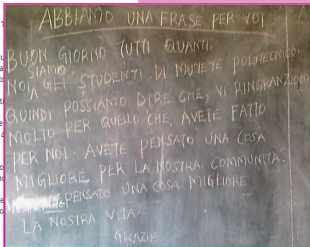 ABBIAMO UNA FRASE PER VOI
BUON GIORNO TUTTI QUANTI.
NOI SIAMO GLI STUDENTI DI MUYEYE POLITECNICO.
QUINDI POSSIAMO DIRE CHE, VI RINGRANZIONO
MOLTO PER QUELLO CHE, AVETE FATTO
PER NOI. AVETE PENSATO UNA COSA
MIGLIORE PER LA NOSTRA COMMUNITA.
PENSATO UNA COSA MIGLIORE
LA NOSTRA VITA.
GRAZIE